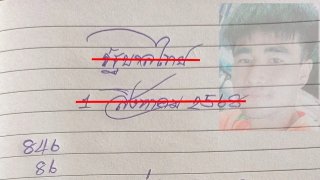 รัฐบาลไทย
1 สิงหาคม 2568
846
86